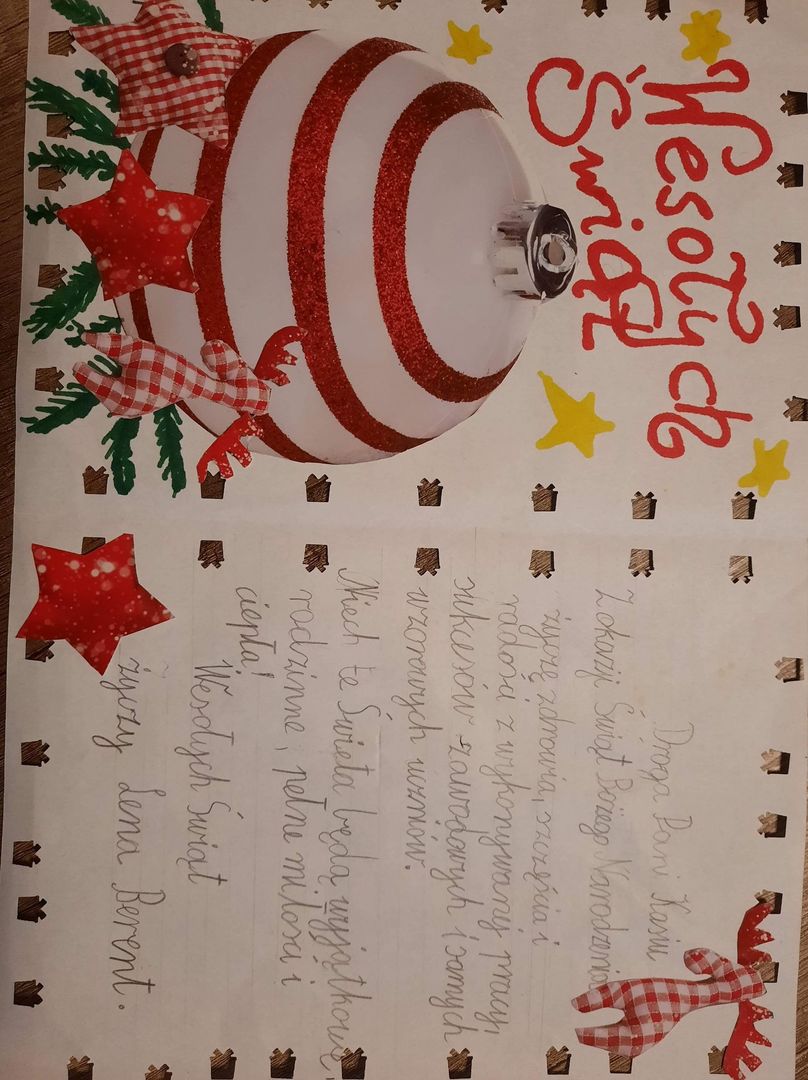 Wesołych
Świąt
Droga Pani Kasiu
Z okazji Świąt Bożego Narodzenia
życzę zdrowia, szczęścia i
radości z wykonywanej pracy,
sukcesów zawodowych i samych
wzorowych uczniów.
Niech te Święta będą wyjątkowe,
rodzinne, pełne miłości i
ciepła!
Wesołych Świąt
życzy Lena Berent.